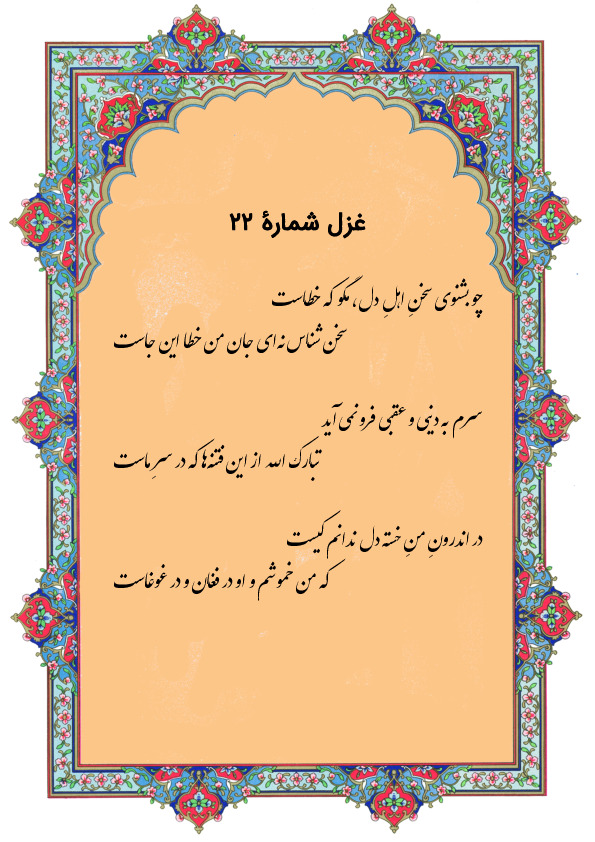 غزل شمارهٔ ۲۲
چو بشنوی سخنِ اهلِ دل، مگو که خطاست
سخن شناس نه‌ای جان من خطا این جاست
سرم به دنیی و عقبی فرونمی‌آید
تبارک الله از این فتنه‌ها که در سرِ ماست
در اندرونِ منِ خسته دل ندانم کیست
که من خموشم و او در فغان و در غوغاست